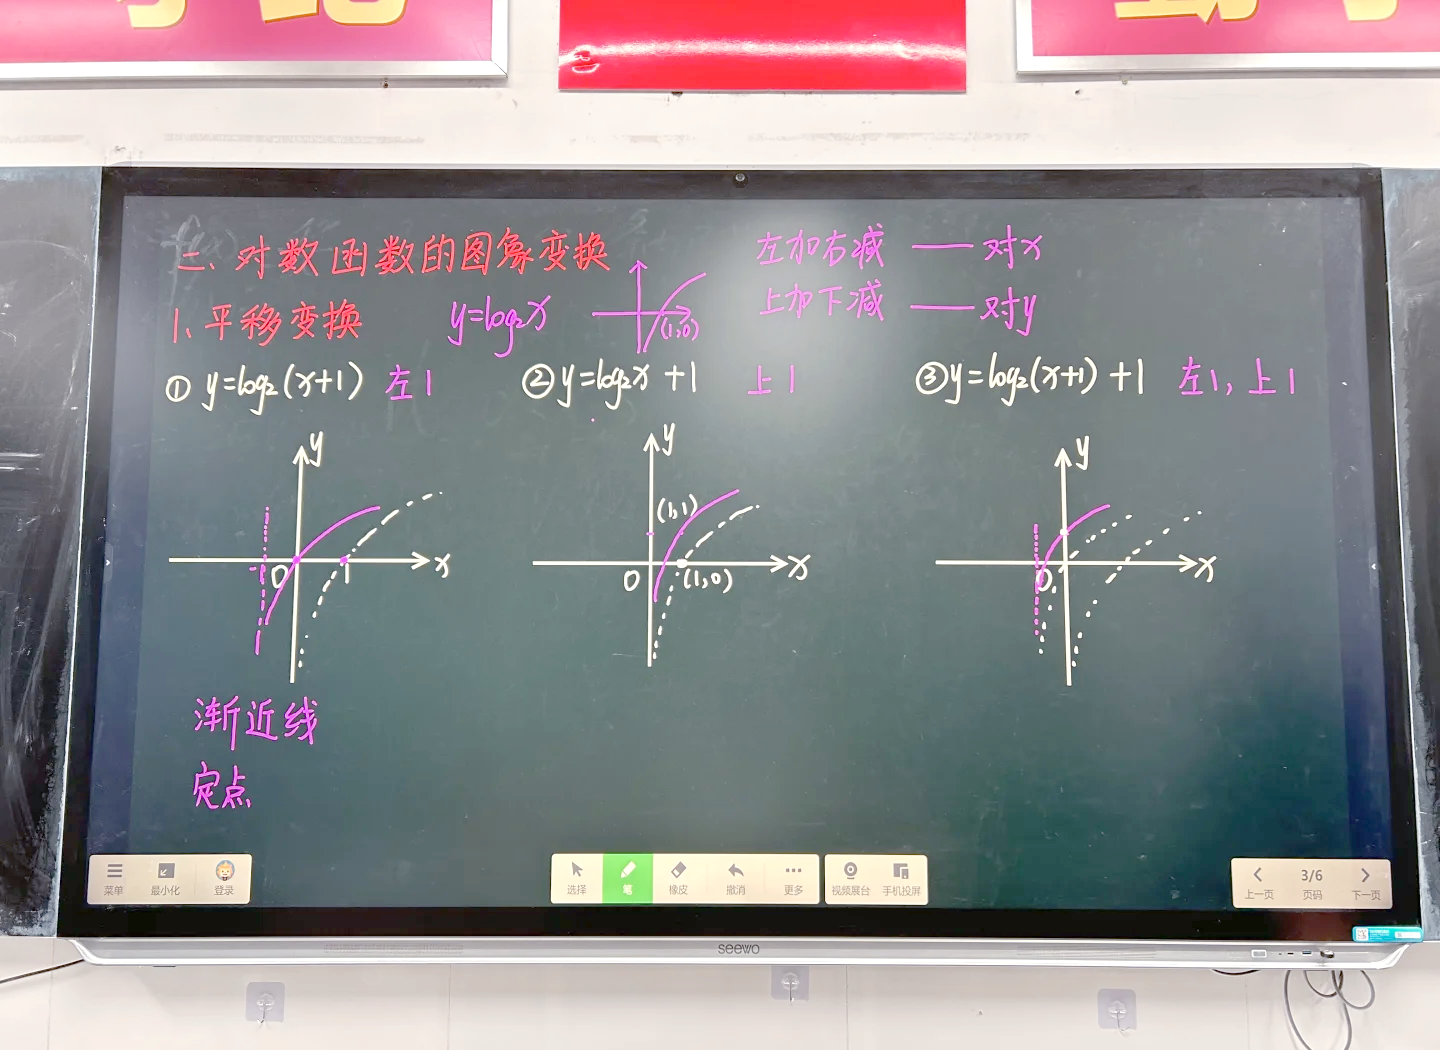 二、对数函数的图象变换
左加右减 —— 对x
上加下减 —— 对y
1、平移变换 y=log₂x
(1,0)
① y=log₂(x+1) 左1
② y=log₂x +1 上1
③ y=log₂(x+1) +1 左1, 上1
y
x
O
1
-1
y
(1,1)
x
O
(1,0)
y
x
O
渐近线
定点
菜单
最小化
登录
选择
笔
橡皮
撤消
更多
视频展台
手机投屏
上一页
3/6
页码
下一页
seewo